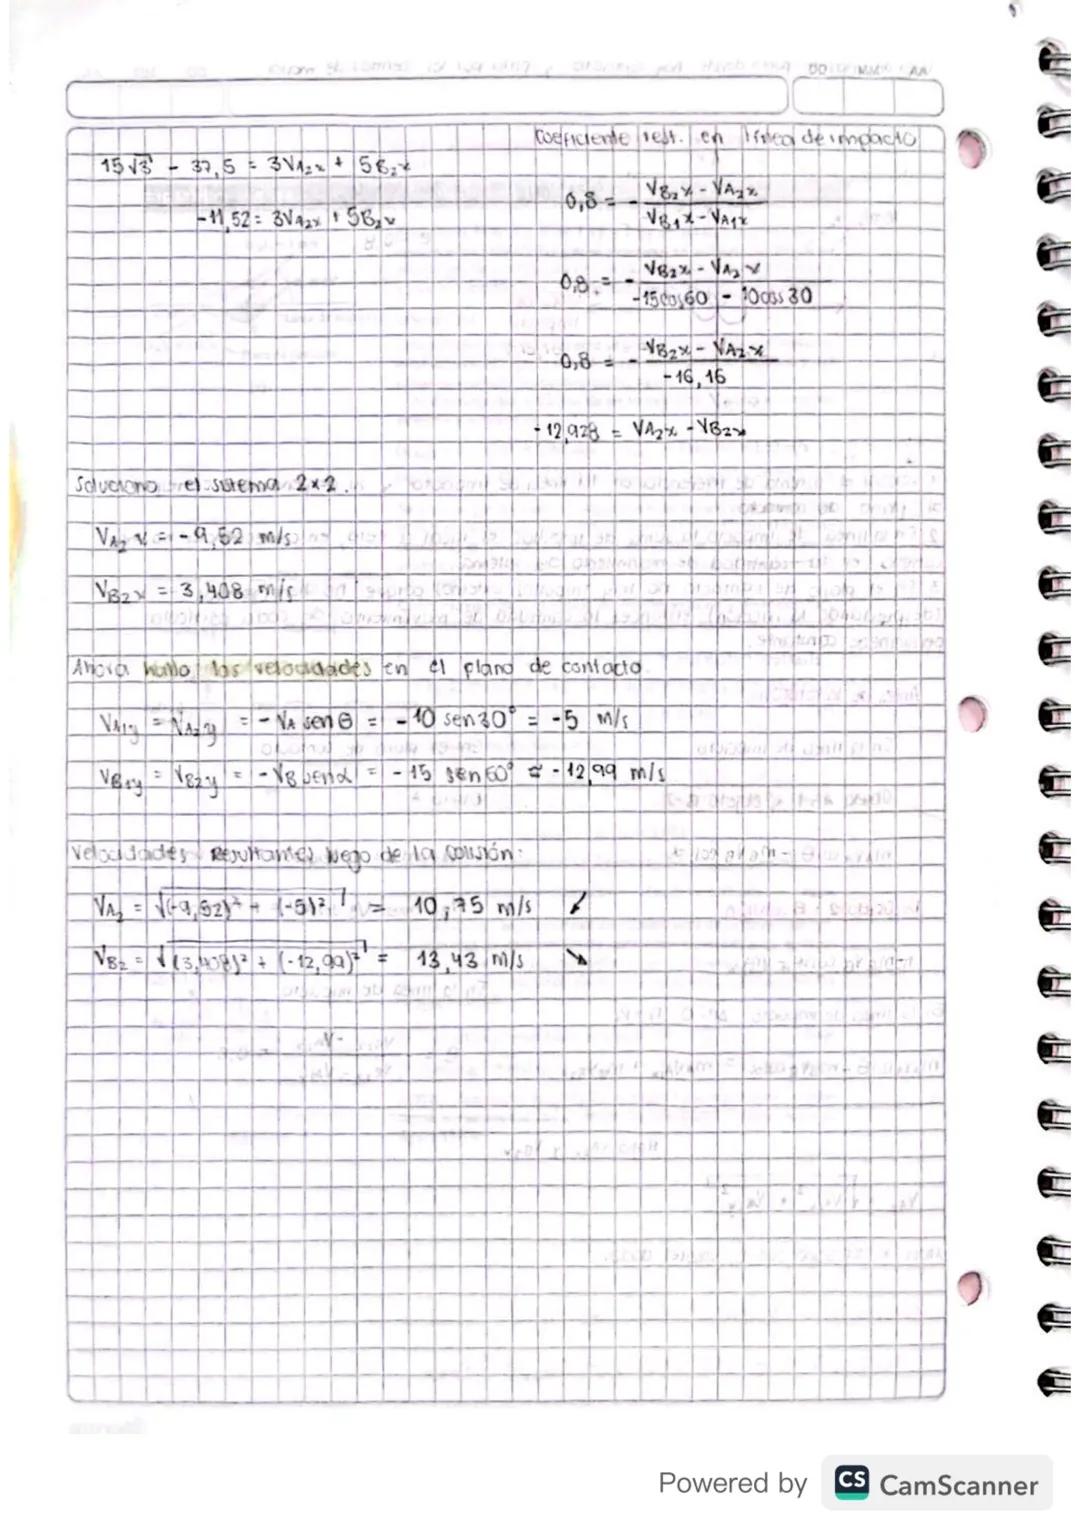 Coeficiente rest. en línea de impacto
15√3 - 37,5 = 3VA₂x + 5B₂x
-11,52 = 3VA₂x + 5B₂x
0,8 = - (VB₂x - VA₂x) / (VB₁x - VA₁x)
0,8 = - (VB₂x - VA₂x) / (-15cos60 - 10cos30)
0,8 = - (VB₂x - VA₂x) / (-16,16)
-12,928 = VA₂x - VB₂x
Soluciono el sistema 2x2.
VA₂x = -9,52 m/s
VB₂x = 3,408 m/s
Ahora hallo las velocidades en el plano de contacto.
VA₁y = VA₂y = -VA senθ = -10 sen30° = -5 m/s
VB₁y = VB₂y = -VB senα = -15 sen60° = -12,99 m/s
Velocidades Resultantes luego de la colisión:
VA₂ = √((-9,52)² + (-5)²) = 10,75 m/s ↙
VB₂ = √((3,408)² + (-12,99)²) = 13,43 m/s ↘
Powered by CS CamScanner